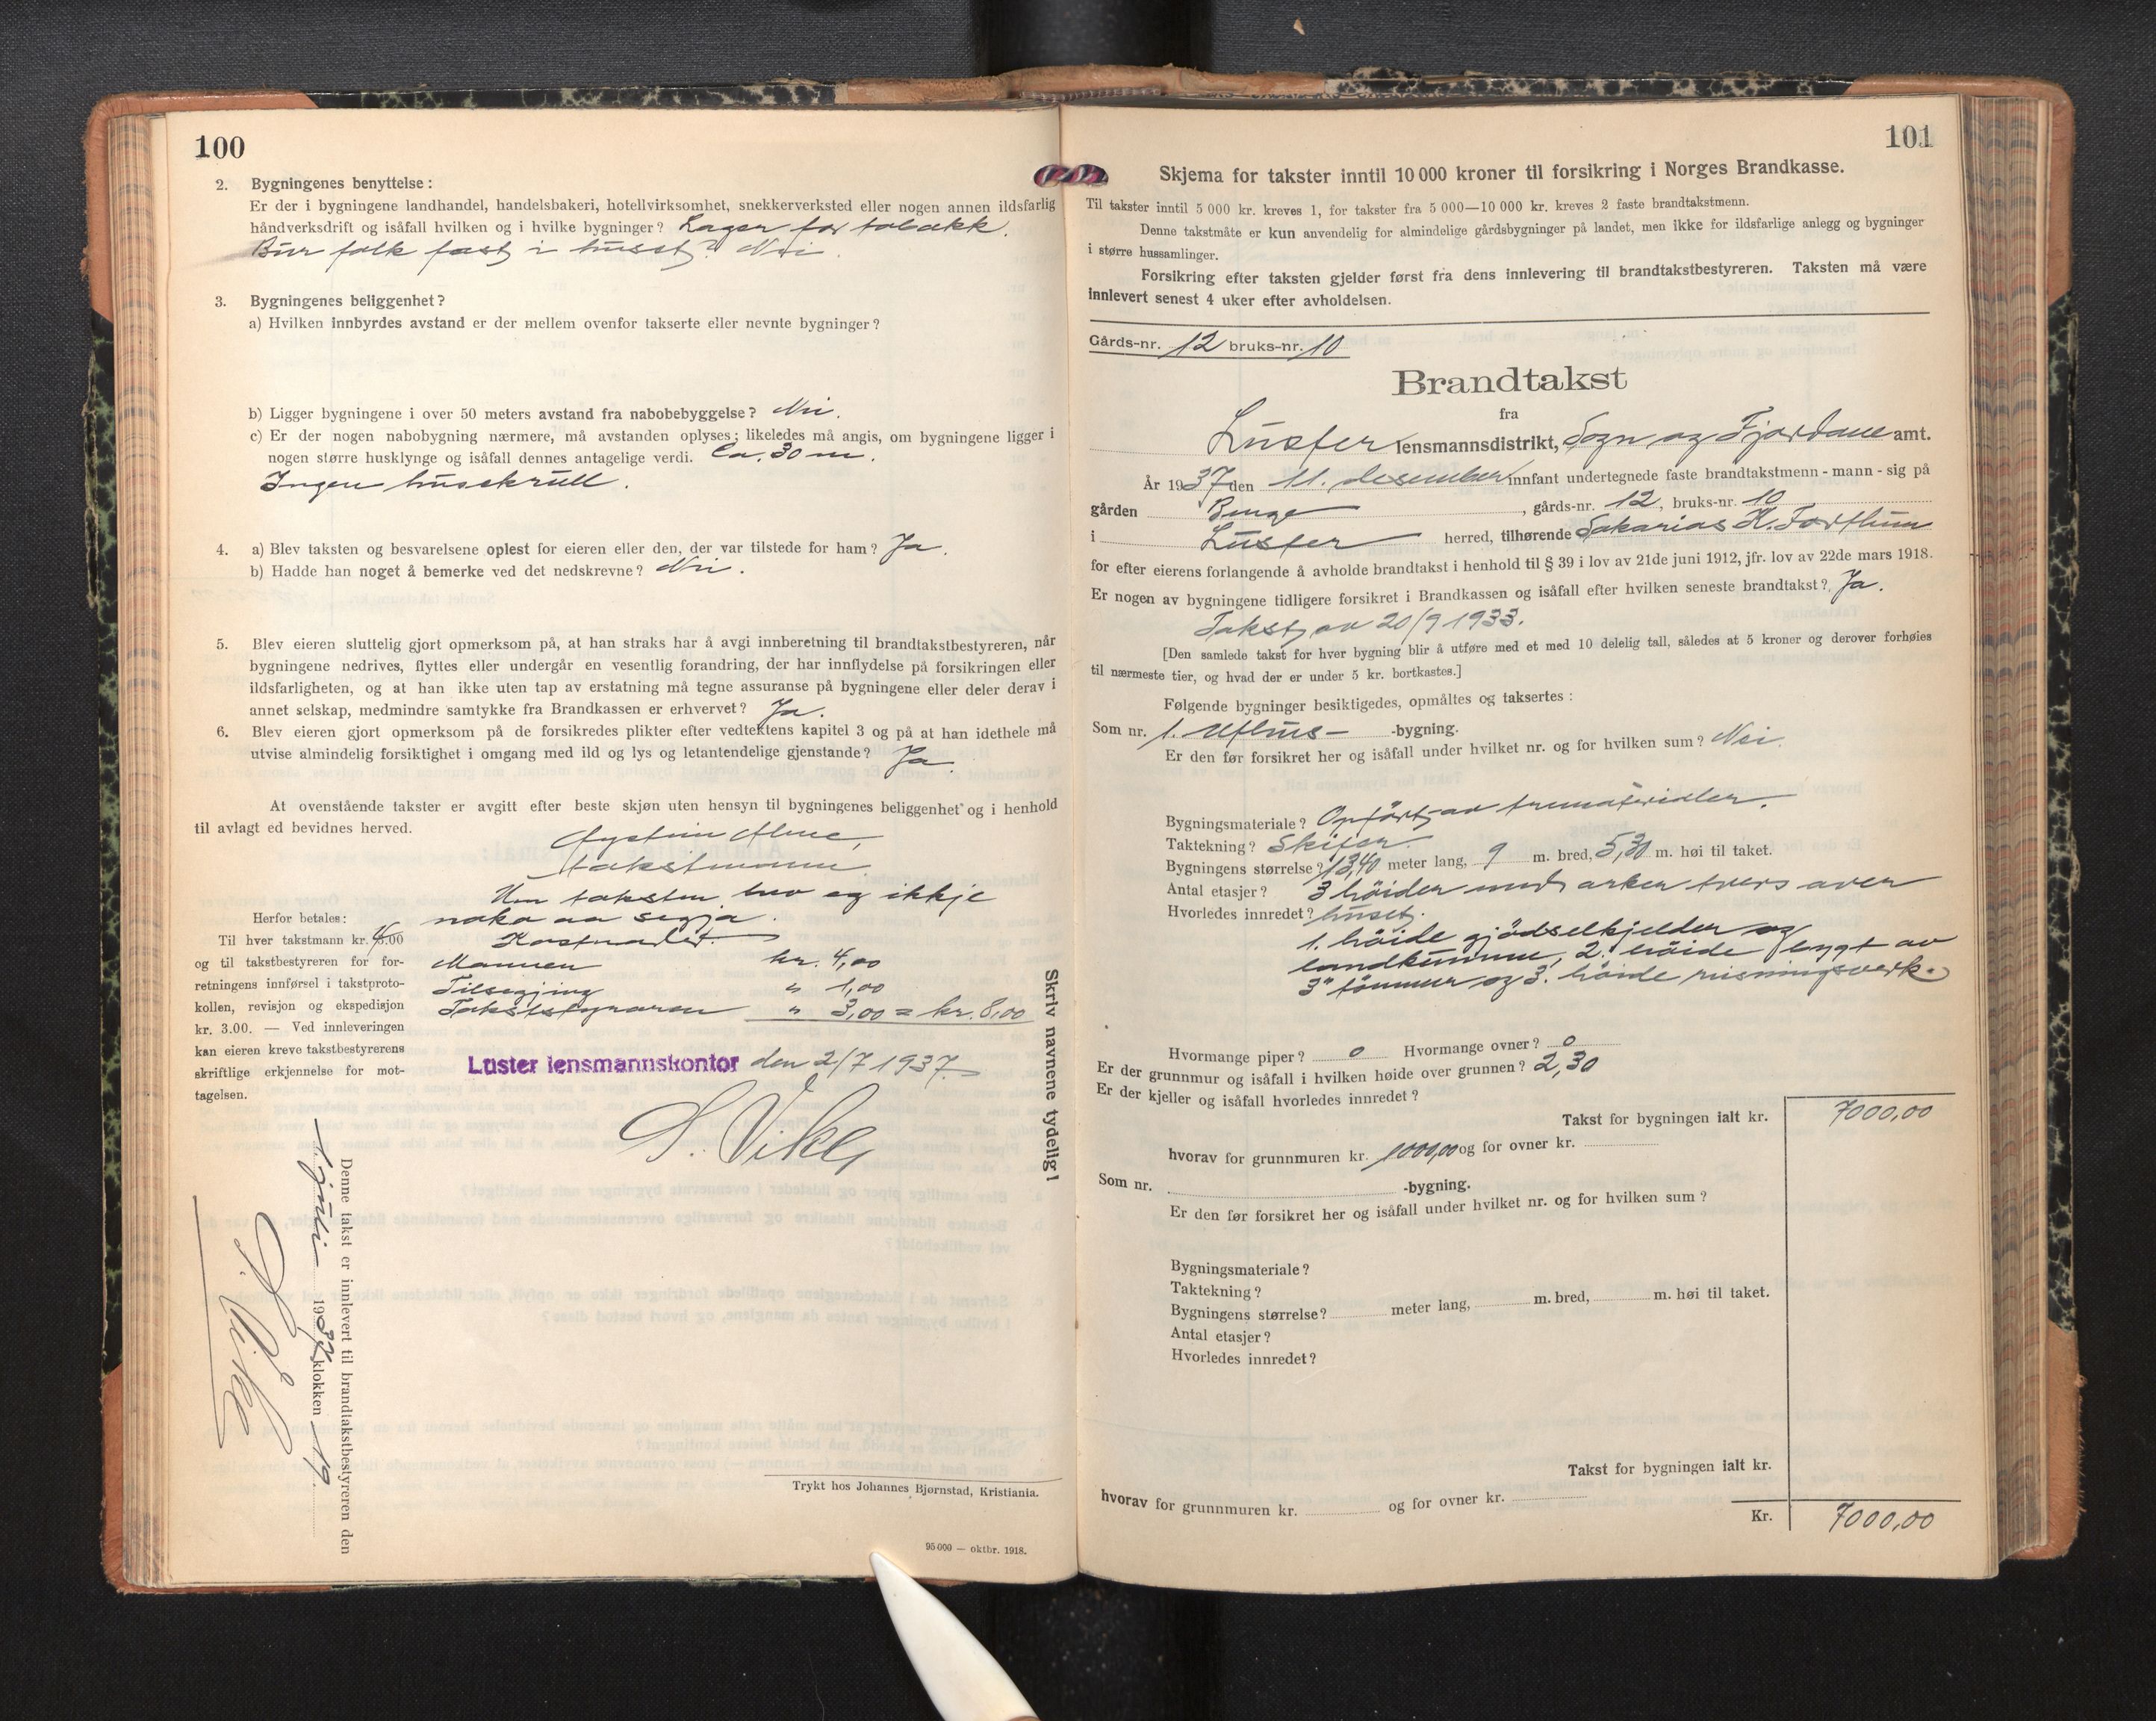 100
2. Bygningenes benyttelse:
Er der i bygningene landhandel, handelsbakeri, hotellvirksomhet, snekkerverksted eller nogen annen ildsfarlig
håndverksdrift og isåfall hvilken og i hvilke bygninger? Lager for tobakk.
Bur folk fast i huset? Nei.
3. Bygningenes beliggenhet?
a) Hvilken innbyrdes avstand er der mellem ovenfor takserte eller nevnte bygninger?
b) Ligger bygningene i over 50 meters avstand fra nabobebyggelse? Nei.
c) Er der nogen nabobygning nærmere, må avstanden oplyses; likeledes må angis, om bygningene ligger i
nogen større husklynge og isåfall dennes antagelige verdi. Ca. 30 m.
Ingen husekrull.
4. a) Blev taksten og besvarelsene oplest for eieren eller den, der var tilstede for ham? Ja.
b) Hadde han noget å bemerke ved det nedskrevne? Nei.
5. Blev eieren sluttelig gjort opmerksom på, at han straks har å avgi innberetning til brandtakstbestyreren, når
bygningene nedrives, flyttes eller undergår en vesentlig forandring, der har innflydelse på forsikringen eller
ildsfarligheten, og at han ikke uten tap av erstatning må tegne assuranse på bygningene eller deler derav i
annet selskap, medmindre samtykke fra Brandkassen er erhvervet? Ja.
6. Blev eieren gjort opmerksom på de forsikredes plikter efter vedtektens kapitel 3 og på at han idethele må
utvise almindelig forsiktighet i omgang med ild og lys og letantendelige gjenstande? Ja.
At ovenstående takster er avgitt efter beste skjøn uten hensyn til bygningenes beliggenhet og i henhold
til avlagt ed bevidnes herved.
takstmann.
Um taksten hev eg ikkje
noko aa segja.
Kostnader.
Herfor betales:
Til hver takstmann kr. 4.00
og til takstbestyreren for for-
retningens innførsel i takstproto-
kollen, revisjon og ekspedisjon
kr. 3.00. — Ved innleveringen
kan eieren kreve takstbestyrerens
skriftlige erkjennelse for mot-
tagelsen.
Mannen kr. 4,00
Tilsegjing " 1,00
Takststyraren " 3,00 = kr. 8,00
Luster lensmannskontor den 2/7 1937.
S. Vike
Skriv navnene tydelig!
Denne takst er innlevert til brandtakstbestyreren den
1. juli 1937 klokken 19.
S. Vike
Trykt hos Johannes Bjørnstad, Kristiania.
95 000 — oktbr. 1918.
101
Skjema for takster inntil 10 000 kroner til forsikring i Norges Brandkasse.
Til takster inntil 5 000 kr. kreves 1, for takster fra 5 000—10 000 kr. kreves 2 faste brandtakstmenn.
Denne takstmåte er kun anvendelig for almindelige gårdsbygninger på landet, men ikke for ildsfarlige anlegg og bygninger
i større hussamlinger.
Forsikring efter taksten gjelder først fra dens innlevering til brandtakstbestyreren. Taksten må være
innlevert senest 4 uker efter avholdelsen.
Gårds-nr. 12 bruks-nr. 10
Brandtakst
fra
Luster lensmannsdistrikt, Sogn og Fjordane amt.
År 1937 den 11. desember innfant undertegnede faste brandtakstmenn - mann - sig på
gården Bunge, gårds-nr. 12, bruks-nr. 10
i Luster herred, tilhørende Sakarias H. Forthun
for efter eierens forlangende å avholde brandtakst i henhold til § 39 i lov av 21de juni 1912, jfr. lov av 22de mars 1918.
Er nogen av bygningene tidligere forsikret i Brandkassen og isåfall efter hvilken seneste brandtakst? Ja.
Takst av 20/9 1933.
[Den samlede takst for hver bygning blir å utføre med et med 10 delelig tall, således at 5 kroner og derover forhøies
til nærmeste tier, og hvad der er under 5 kr. bortkastes.]
Følgende bygninger besiktigedes, opmåltes og taksertes:
Som nr. 1. Uthus- -bygning.
Er den før forsikret her og isåfall under hvilket nr. og for hvilken sum? Nei.
Bygningsmateriale? Opført av trematerialer.
Taktekning? Skifer.
Bygningens størrelse? 13,40 meter lang, 9 m. bred, 5,30 m. høi til taket.
Antal etasjer? 3 höider med arker tvers over
Hvorledes innredet? huset.
1. höide gjödselkjelder og
landkumme, 2. höide bygt av
3" tömmer og 3. höide reisningsverk.
Hvormange piper? 0 Hvormange ovner? 0
Er der grunnmur og isåfall i hvilken høide over grunnen? 2,30
Er der kjeller og isåfall hvorledes innredet?
Takst for bygningen ialt kr. 7000,00
hvorav for grunnmuren kr. 1000,00 og for ovner kr.
Som nr. -bygning.
Er den før forsikret her og isåfall under hvilket nr. og for hvilken sum?
Bygningsmateriale?
Taktekning?
Bygningens størrelse? meter lang, m. bred, m. høi til taket.
Antal etasjer?
Hvorledes innredet?
Takst for bygningen ialt kr.
hvorav for grunnmuren kr. og for ovner kr.
Kr. 7000,00